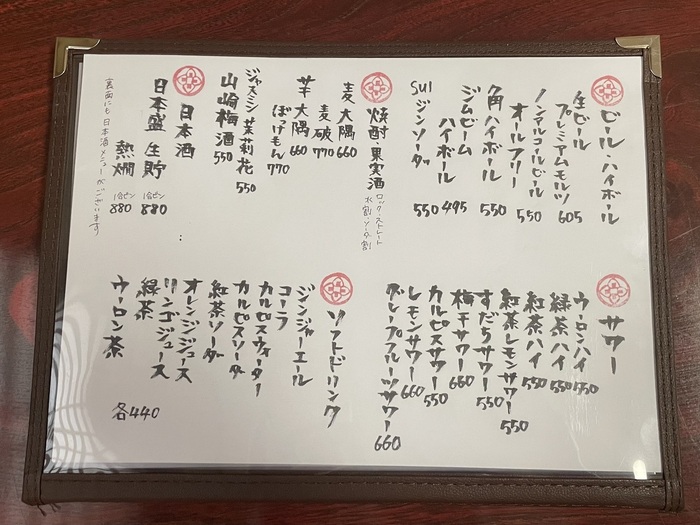 ビール・ハイボール
生ビール
プレミアムモルツ 605
ノンアルコールビール
オールフリー 550
角ハイボール 550
ジムビーム
ハイボール 495
SUI
ジンソーダ 550
焼酎・果実酒
ロック・ストレート
水割・ソーダ割
麦 大隅 660
麦破 770
芋 大隅 660
ぼけもん 770
ジャスミン 茉莉花 550
山崎梅酒 550
日本酒
日本盛 生貯 1合ビン 880
熱燗 1合ビン 880
裏面にも日本酒メニューがございます
サワー
ウーロンハイ 550
緑茶ハイ 550
紅茶ハイ 550
紅茶レモンサワー 550
すだちサワー 550
梅干サワー 660
カルピスサワー 550
レモンサワー 660
グレープフルーツサワー 660
ソフトドリンク
ジンジャーエール
コーラ
カルピスウォーター
カルピスソーダ
紅茶ソーダ
オレンジジュース
リンゴジュース
緑茶
ウーロン茶
各440